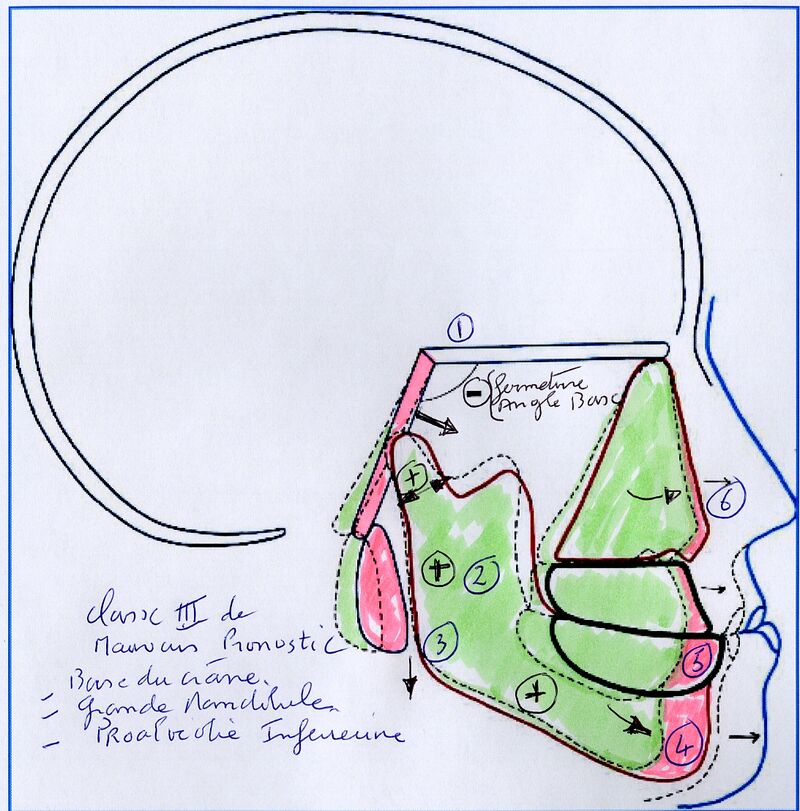 1
- fermeture
Angle Base
+
6
+ 2
3
+
5
4
Classe III de
Mauvais Pronostic
Base du crâne.
- Grande Mandibule.
- Proalvéolie Inférieure